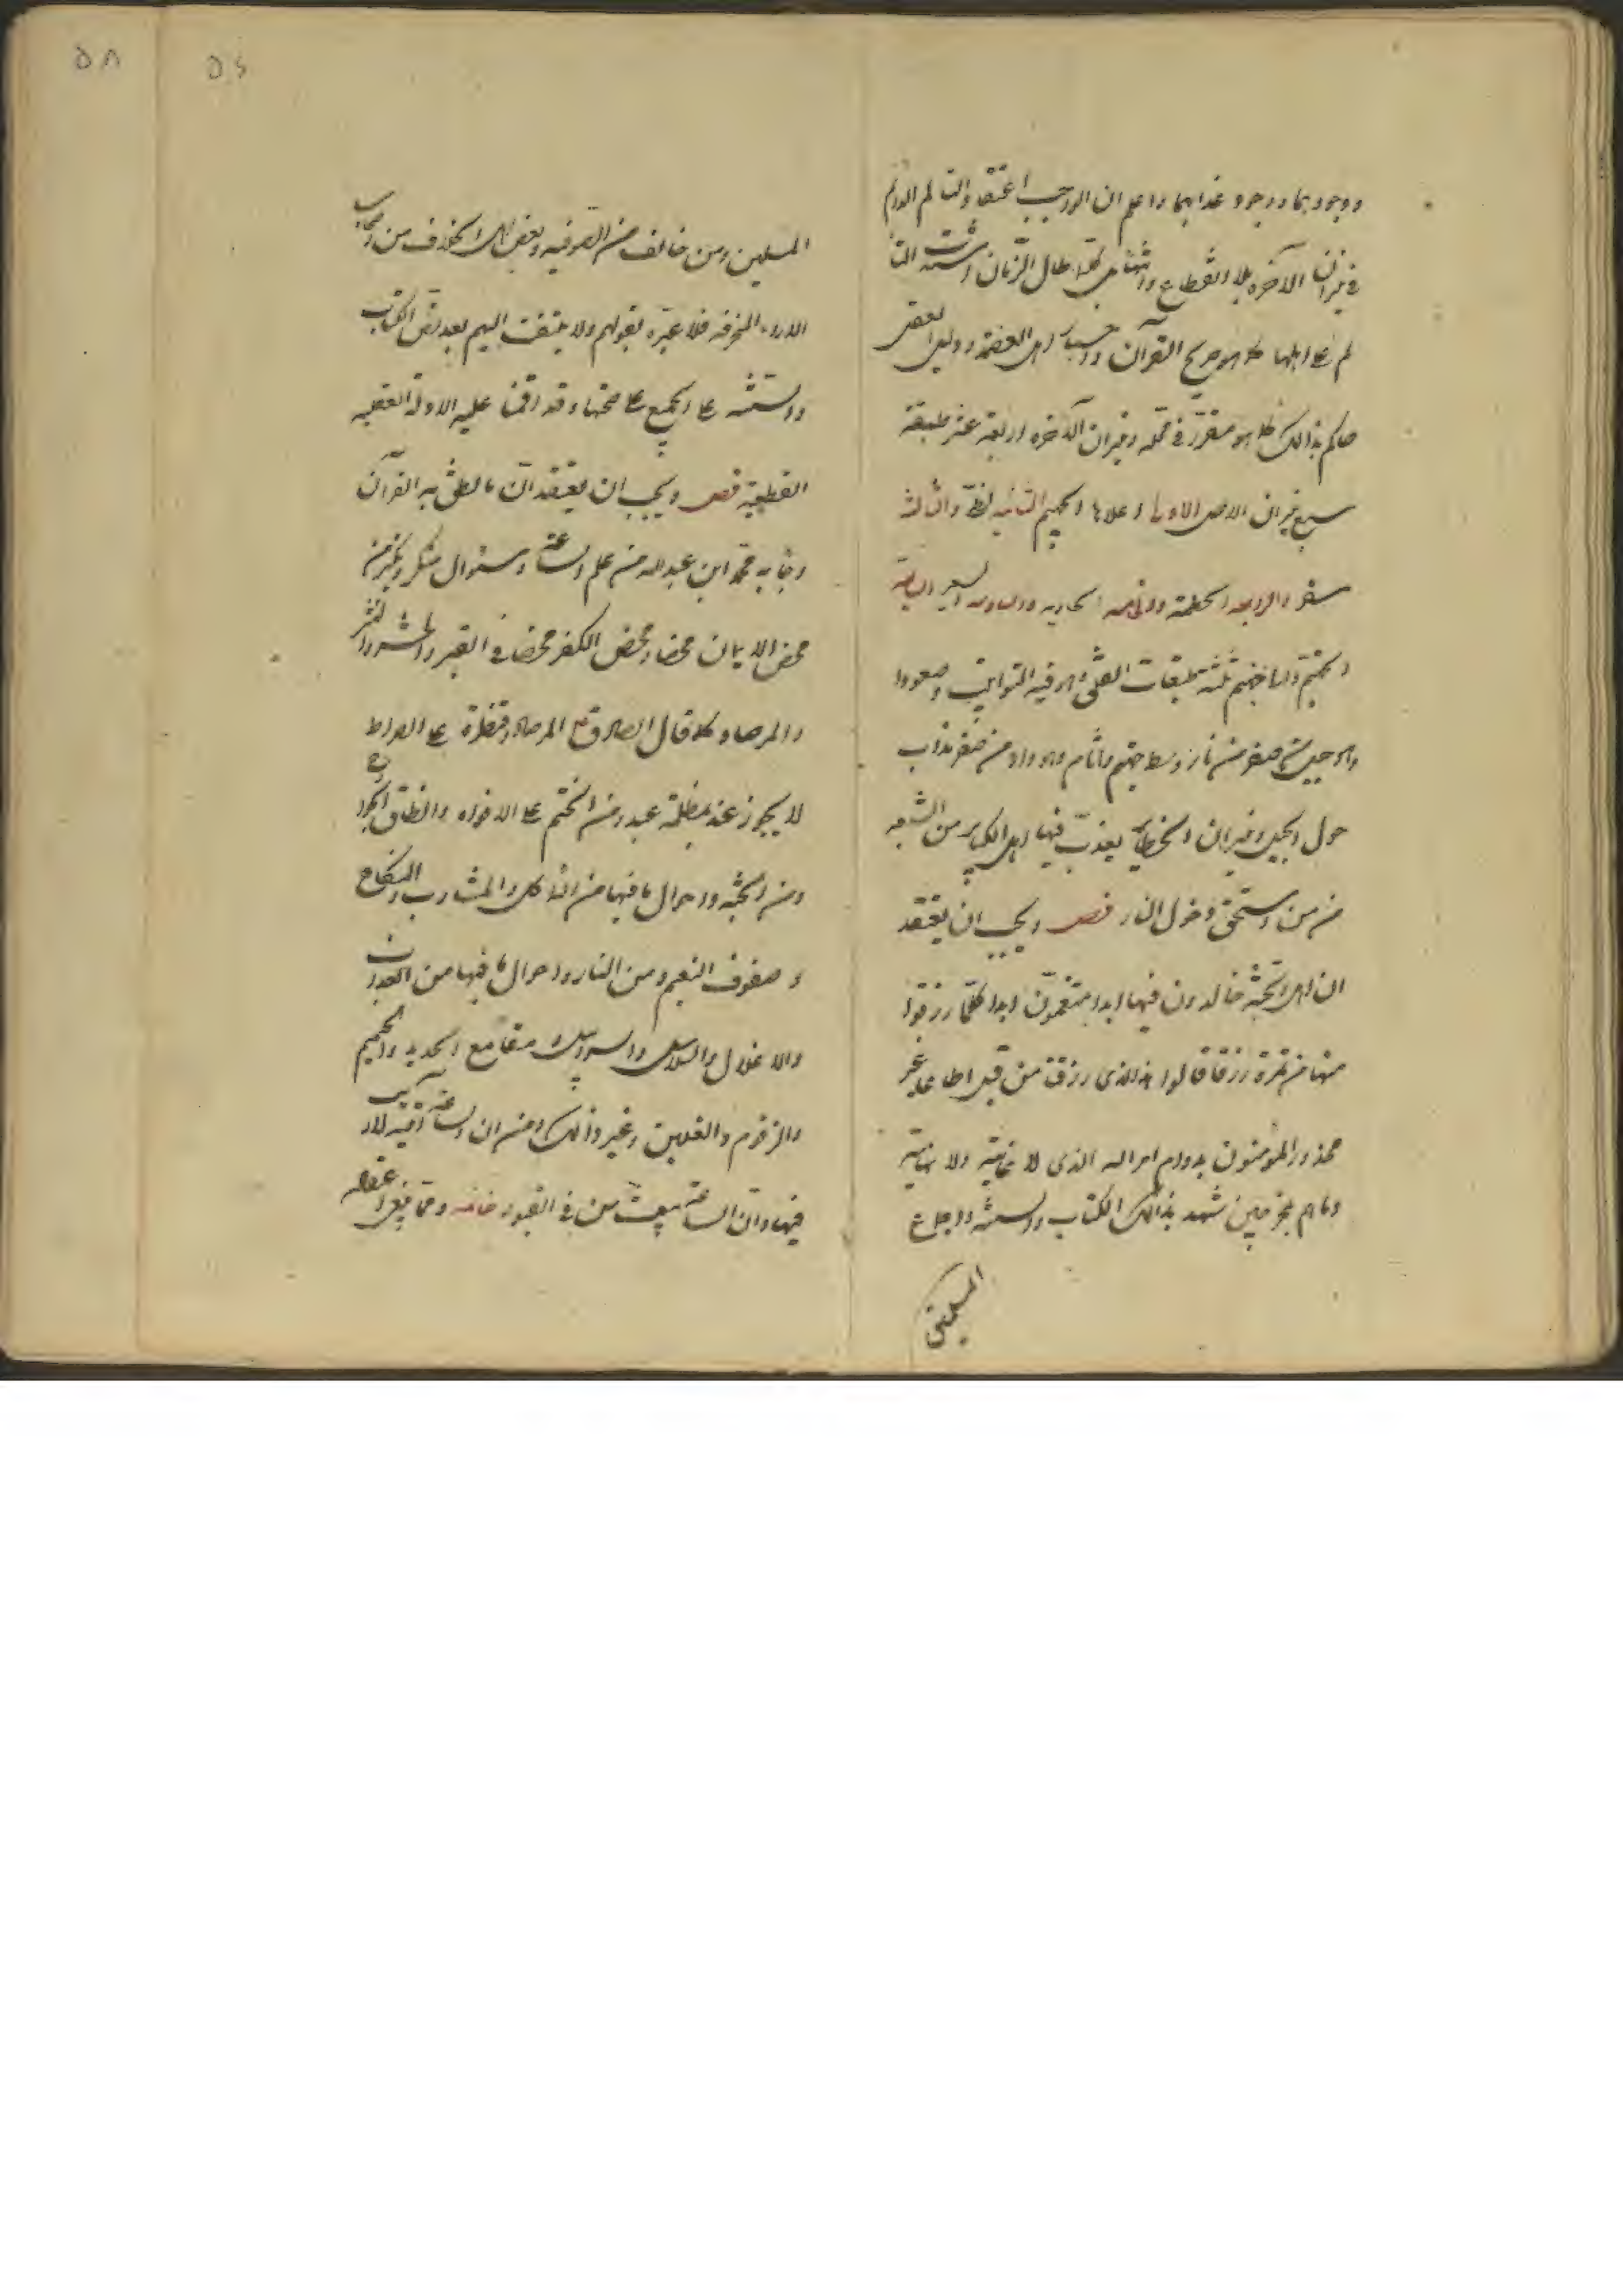 ووجودهما ووجود عذابهما واعلم ان الواجب اعتقاد التألم الدائم
في نيران الآخرة بلا انقطاع وانتهاء بل كلما طال الزمان اشتد التأ
لم على اهلها كما هو صريح القرآن واحاديث اهل العصمة ودليل العقل
حاكم بذالك كما هو مقرر في محله ونيران الآخرة اربعة عشر طبقة
سبع نيران الاصل الاولى اعلاها الجحيم الثانية لظى والثالثة
سقر والرابعة الحطمة والخامسة الهاوية والسادسة السعير السابعة
جهنم ثلثة طبقات الفلق وهو فيه التوابيت وصعودا
وهو جبل من صفر من نار وسط جهنم واثام وهو واد من صفر مذاب
حول الجبل ونيران يعذب فيها اهل الكبائر من الشيعة
من من استحق دخول النار فصل ويجب ان يعتقد
ان اهل الجنة خالدون فيها ابدا متنعمون ابدا كلما رزقوا
منها من ثمرة رزقا قالوا هذا الذي رزقنا من قبل عطاء غير
مجذوذ المؤمنون بدوام امر الله الذي لا غاية ولا نهاية
وما هم بمخرجين شهد بذالك الكتاب والسنة واجماع
المسلمين
المسلمين ومن خالف من الصوفيه وبعض اهل الخلاف من اصحاب
الاراء المنحرفه فلا عبرة بقولهم ولا يلتفت اليهم بعد نص الكتاب
والسنة على الجميع على صحتها وقد اقمنا عليه الادلة العقلية
القطعية فصل ويجب ان يعتقد ان ما نطق به القرآن
وجاء به محمد ابن عبدالله من علم الساعة وسئوال منكر ونكير من
محض الايمان محضا ومحض الكفر محضا في القبر والحشر والنشر
والمرصاد كما قال الصادق ع المرصاد قنطرة على الصراط
لا يجوز عبد بمظلمة عبد ومن الختم على الافواه وانطاق الجوارح
ومن الجنة واحوال ما فيها من المأكل والمشارب والنكاح
و صنوف النعيم ومن النار واحوال ما فيها من العذاب
والاغلال والسلاسل والسرابيل مقامع الحديد والحميم
والزقوم والغسلين وغير ذالك ومن ان الساعة آتية لا ريب
فيها وان الله يبعث من في القبور خاتمه ومما ينبغي اعتقاده
٥٦
٥٨